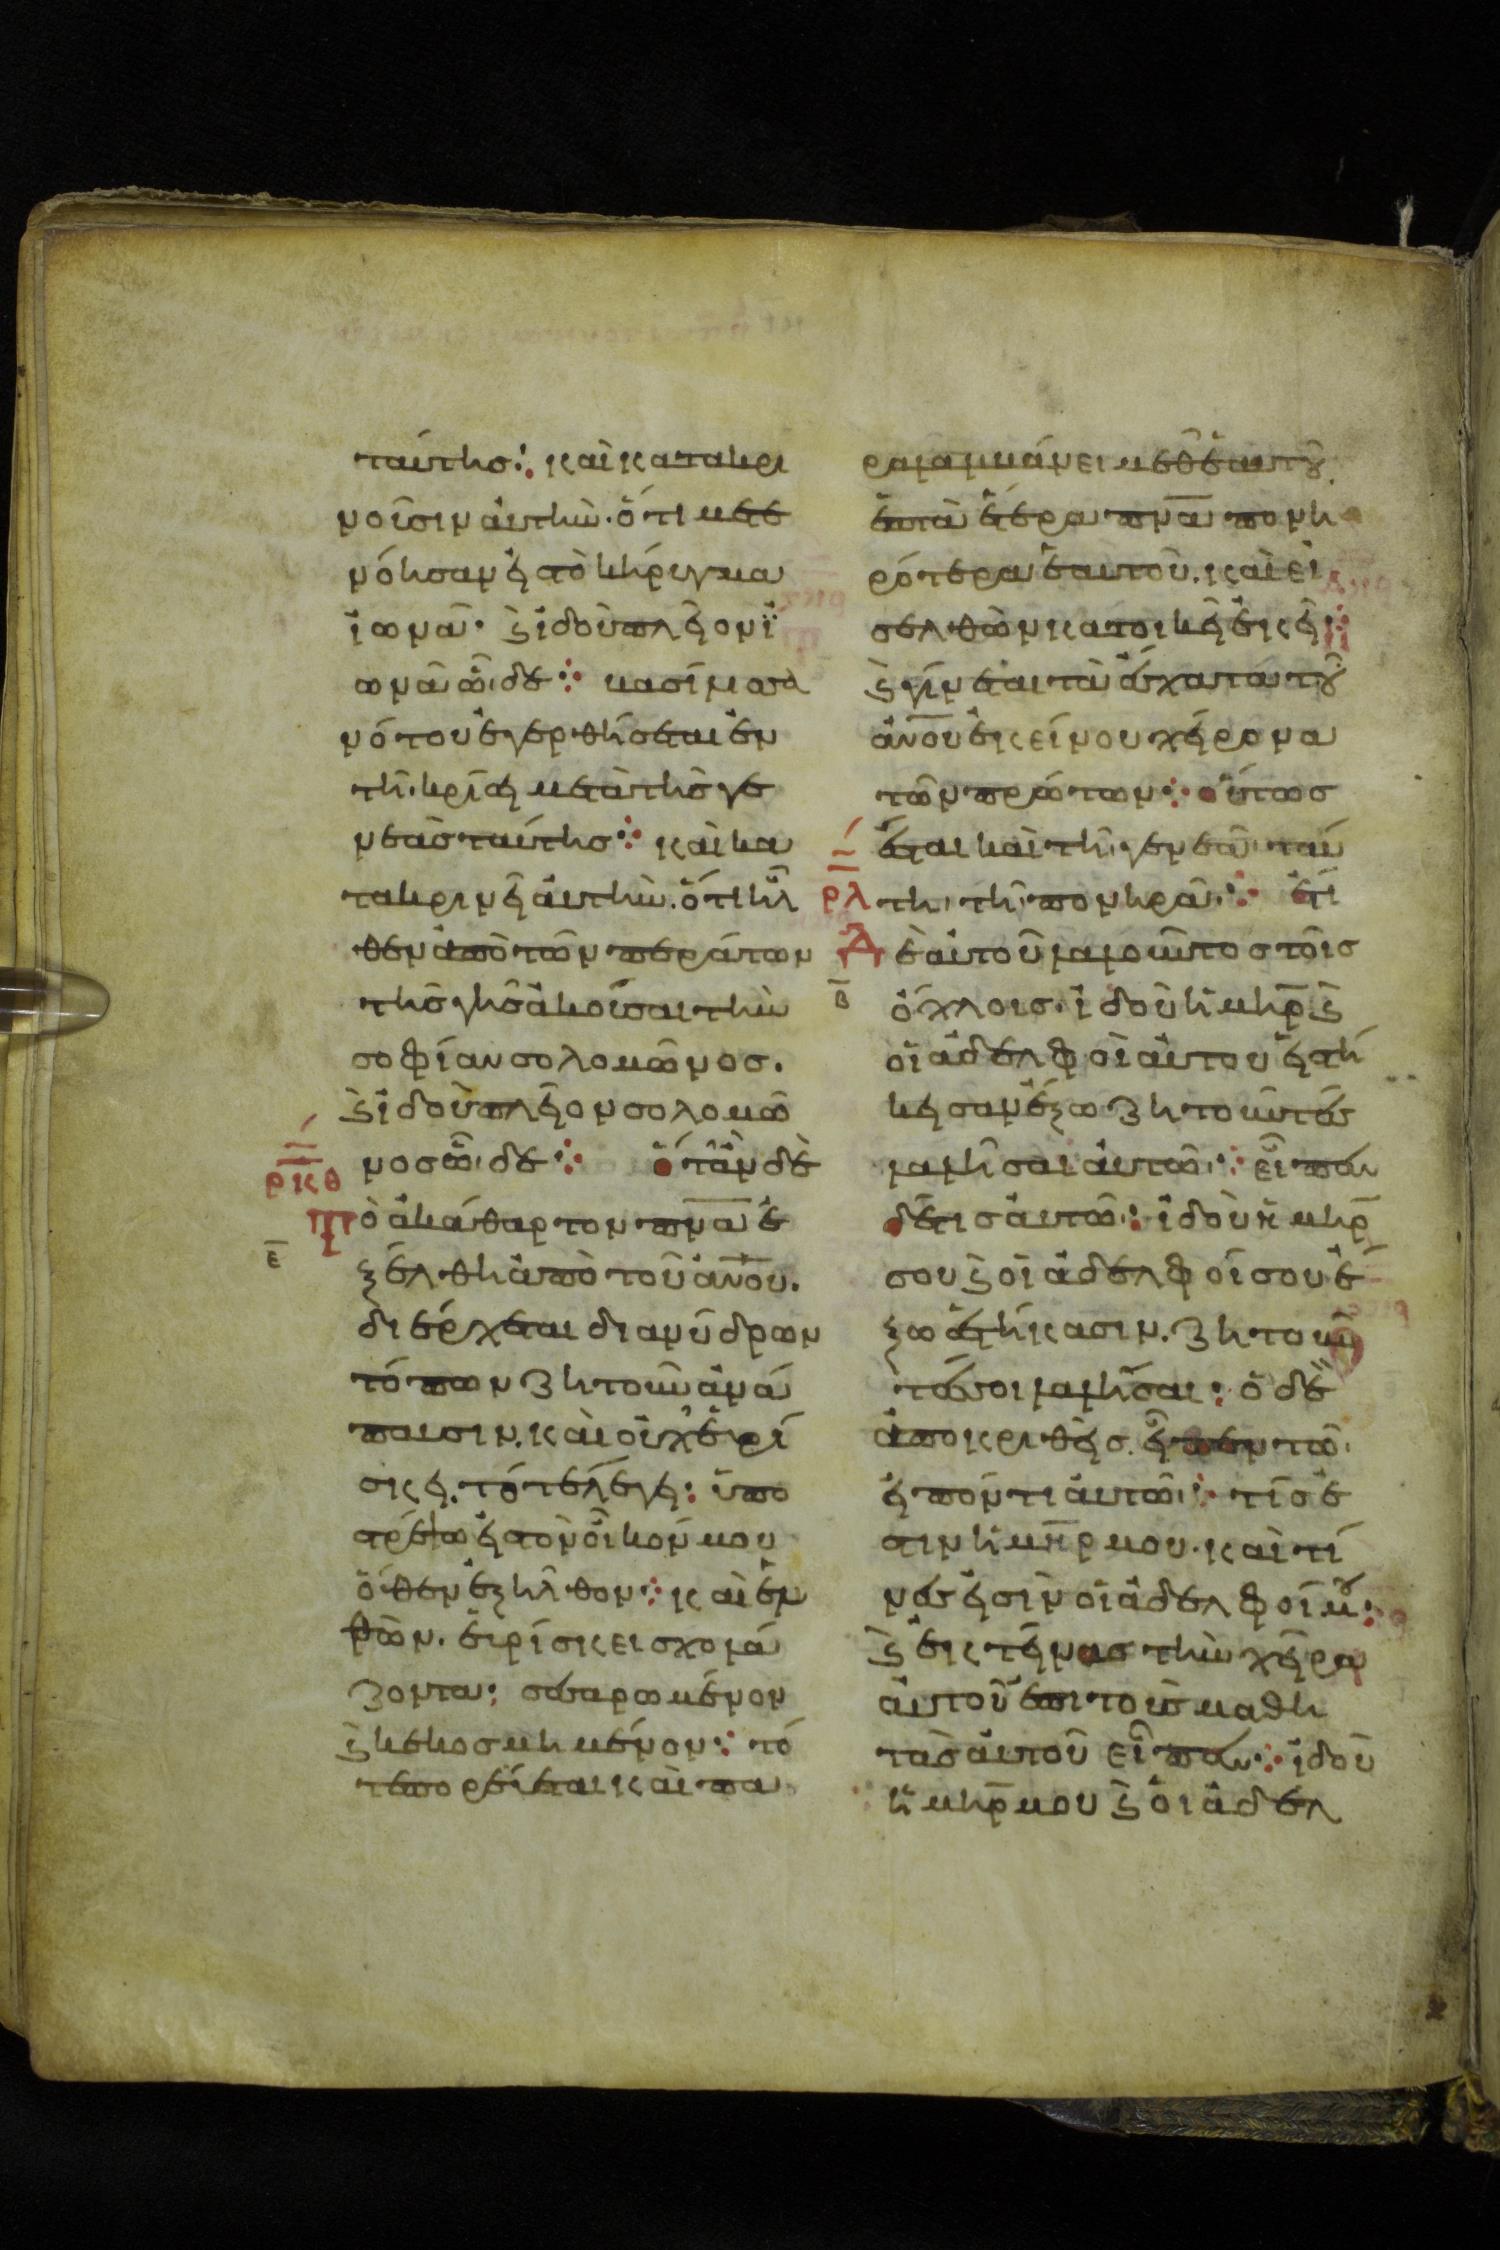 ταύτησ· καὶ κατακρι
νοῦσιν ἀυτὴν· ὅτι μετε
νόησαν εἰς τὸ κήρυγμα
ἰωνᾶ· ϗ ἰδοὺ πλεῖον ϊ
ωνᾶ ὧδε· βασίλισσα
νότου ἐγερθήσεται ἐν
τῆ κρίσει μετὰ τῆσ γε
νεᾶσ ταύτησ· καὶ κα
τακρινεῖ ἀυτὴν· ὅτι ἦλ
θεν ἀπὸ τῶν περάτων
τῆσ γῆσ ἀκοῦσαι τὴν
σοφίαν σολομῶνοσ.
ϗ ἰδοὺ πλεῖον σολομῶ
νοσ ὧδε· ὅταν δὲ
ρκθ
τὸ ἀκάθαρτον πνα ἐ
ε
ξέλθη ἀπὸ τοῦ ἀνου.
διέρχεται δι ανύδρων
τόπων ζητοῦν ἀνά
παυσιν, καὶ οὐχ ἑυρί
σκει. τότε λέγει· ὑπο
στρέψω εἰς τὸν οἶκόν μου
ὅθεν ἐξῆλθον· καὶ ἐλ
θὼν. ἑυρίσκει σχολά
ζοντα· σεσαρωμένον
ϗ κεκοσμημένον· τό
τε πορεύεται καὶ πα
ραλαμβάνει μεθ ἑαυτοῦ
ἑπτὰ ἕτερα πνα πονη
ρότερα ἑαυτοῦ. καὶ εἰ
σελθὼν κατοικεῖ ἐκεῖ·
ϗ γίνεται τὰ ἔσχατα τοῦ
ἀνου ἐκείνου χείρονα
τῶν πρώτων· οὕτωσ
ἔσται καὶ τῆ γενεᾶ ταύ
ρλ
τη τῆ πονηρᾶ· ἔτι
δὲ ἀυτοῦ λαλοῦντοσ τοῖσ
β
ὄχλοισ. ἰδοὺ ἡ μηρ ϗ
οἱ ἀδελφοὶ ἀυτου εἱστή
κεισαν ἔξω ζητοῦντες
λαλῆσαι ἀυτῶ· εἶπεν
δέ τισ ἀυτῶ· ἰδοὺ ἡ μηρ
σου ϗ οἱ ἀδελφοί σου ἔ
ξω ἑστήκασιν. ζητοῦν
τές σοι λαλῆσαι· ὁ δὲ
ἀποκριθεὶσ. εἶπεν τῶ
εἰπόντι ἀυτῶ· τίσ ἐ
στιν ἡ μηρ μου. καὶ τί
νες εἰσὶν οἱ ἀδελφοί μου·
ϗ ἐκτείνασ τὴν χεῖρα
ἀυτοῦ ἐπι τοὺσ μαθη
τὰσ ἀυτοῦ εἶπεν· ἰδοὺ
ἡ μηρ μου ϗ ὁι ἀδελ